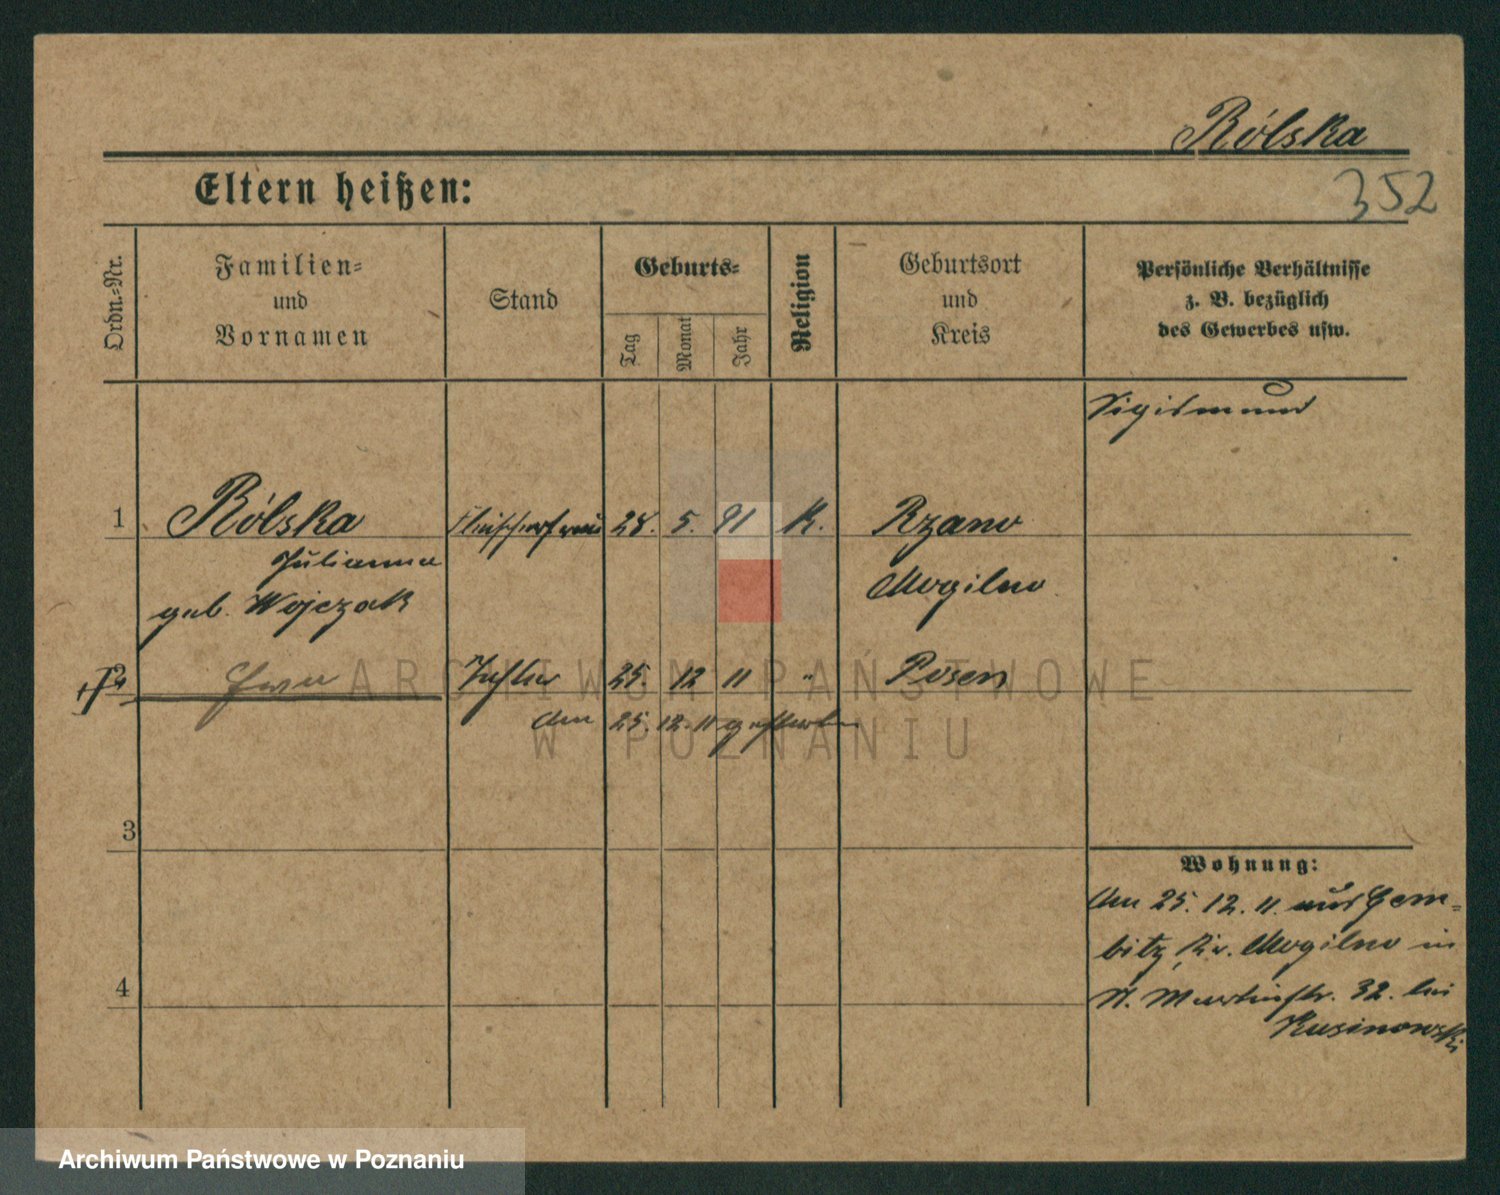 Rólska
352
Eltern heißen:
Ordn.-Nr.
Familien- und Vornamen
Stand
Geburts-
Tag
Monat
Jahr
Religion
Geburtsort und Kreis
Persönliche Verhältnisse
z. B. bezüglich
des Gewerbes usw.
Sigismund
1 Rólska Fleischersfrau 28. 5. 91 K. Rzano
Julianna Mogilno
geb. Wojczak
2 Tochter 25. 12 11 " Posen
am 25. 12. 11 gestorben
ARCHIWUM PAŃSTWOWE
W POZNANIU
3
Wohnung:
Am 25. 12. 11. aus Gem-
bitz, Kr. Mogilno in
St. Martinstr. 32. bei
Kusinowski
4
Archiwum Państwowe w Poznaniu